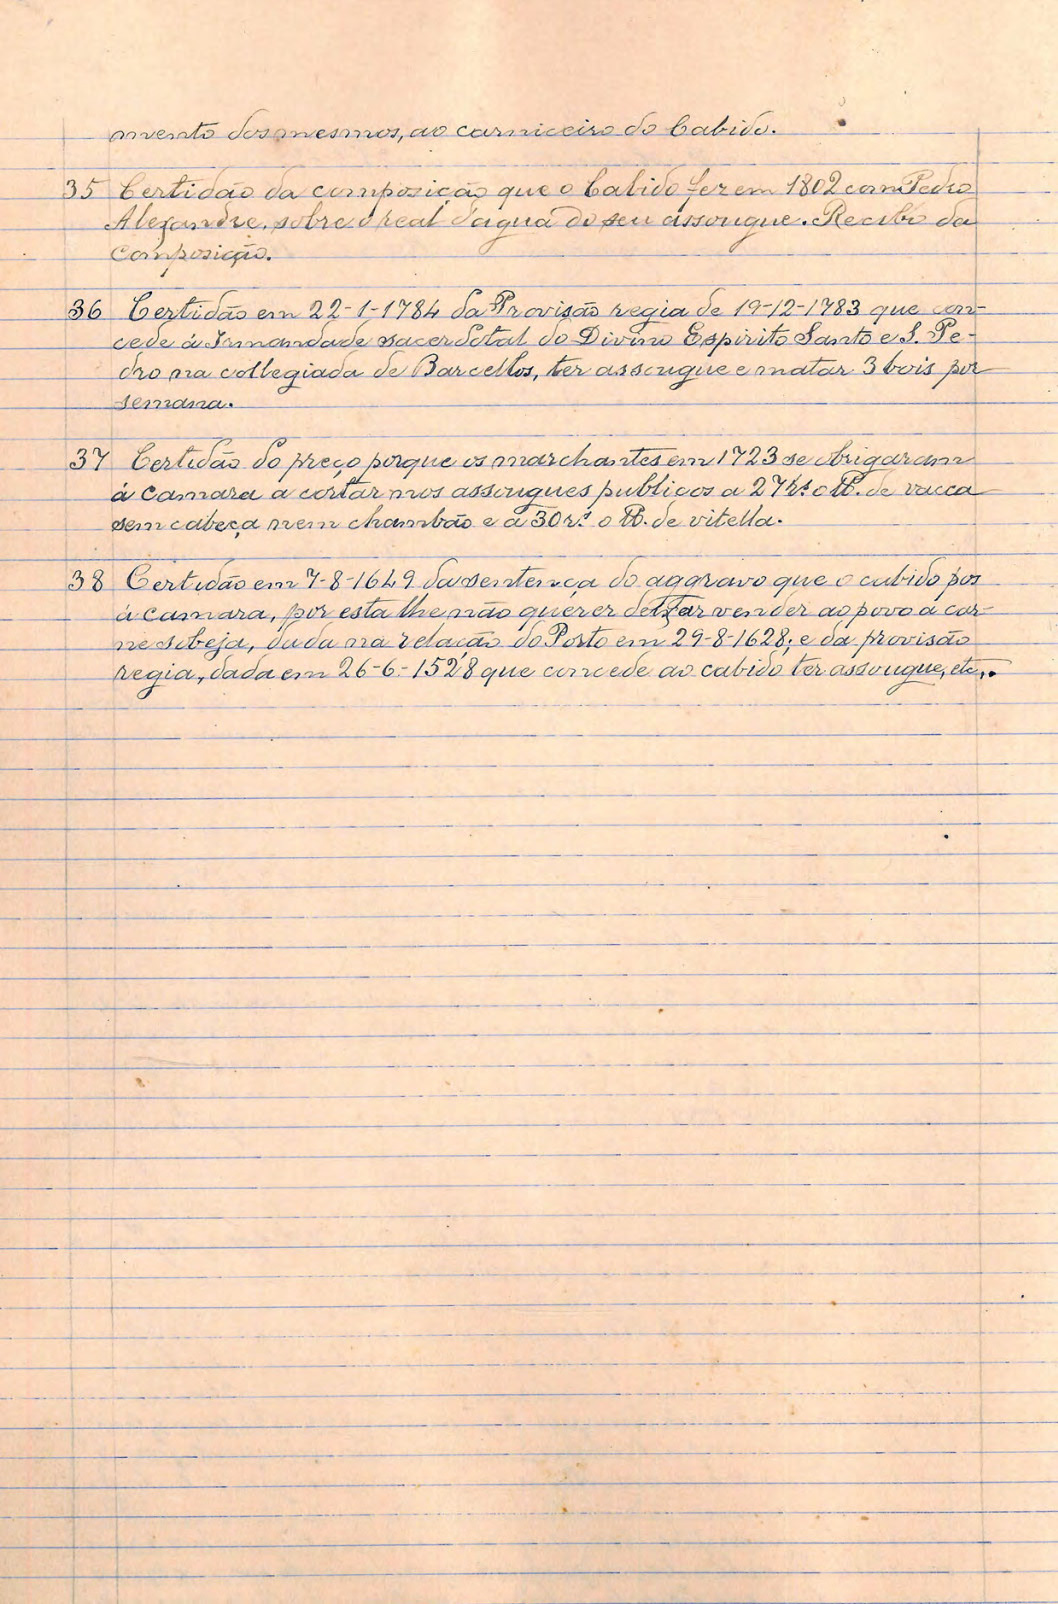 mento dos mesmos, ao carniceiro do Cabido.
35 Certidão da composição que o Cabido fez em 1802 com Pedro
Alexandre, sobre o real d'agua do seu assougue. Recibo da
composição.
36 Certidão em 22-1-1784 da Provisão regia de 19-12-1783 que con-
cede á Irmandade sacerdotal do Divino Espirito Santo e S. Pe-
dro na collegiada de Barcellos, ter assougue e matar 3 bois por
semana.
37 Certidão do preço porque os marchantes em 1723 se obrigaram
á camara a cortar nos assougues publicos a 27 rs. o lb. de vacca
sem cabeça nem chambão e a 30 rs. o lb. de vitella.
38 Certidão em 7-8-1649 da sentença do aggravo que o cabido pos
á camara, por esta lhe não querer deixar vender ao povo a car-
ne sobeja, dada na relação do Porto em 29-8-1628; e da provisão
regia, dada em 26-6-1528 que concede ao cabido ter assougue, etc,.